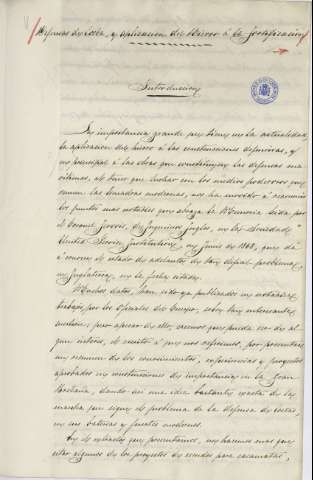 Defensas de costa, y aplicacion del hierro á la fortificacion
Introduccion
La importancia grande que tiene en la actualidad
la aplicacion del hierro á las construcciones defensivas, y
en principal á las obras que constituyen las defensas ma-
ritimas, al tener que luchar con los medios poderosos que
reunen las Escuadras modernas, nos ha movido á resumir
los puntos mas notables que abraza la Memoria leida por
el Coronel Jervois, de Ingenieros Ingles, en la Sociedad
"United Service Institution" en Junio de 1868, que dá
á conocer el estado de adelanto de tan dificil problema,
en Inglaterra, en la fecha citada.
Muchos datos, han sido ya publicados en notables
trabajos por los Oficiales del Cuerpo, sobre tan interesante
cuestion; pero apesar de ello, creemos que pueda ser de al-
gun interés, el escrito á que nos referimos, por presentar
un resumen de los conocimientos, esperiencias y proyectos
aprobados en construcciones de importancia en la Gran
Bretaña, dando en una idea bastante exacta de la
marcha que sigue el problema de la defensa de costas,
en sus baterias y fuertes modernos.
En el estracto que presentamos, no hacemos mas que
citar algunos de los proyectos de escudos para casamatas,